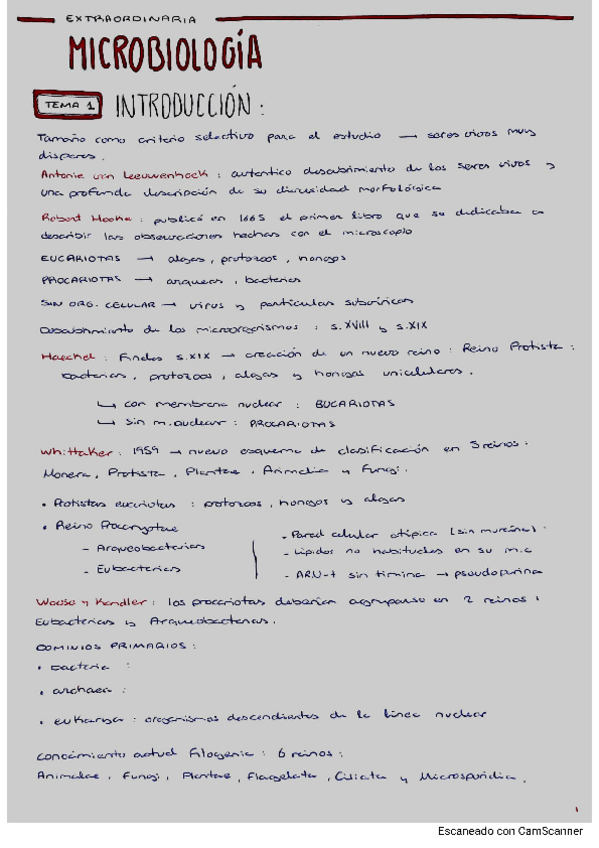 EXTRAORDINARIA
MICROBIOLOGÍA
TEMA 1 INTRODUCCIÓN:
Tamaño como criterio selectivo para el estudio → seres vivos muy
dispares.
Antonie van Leeuwenhoek: autentico descubrimiento de los seres vivos y
una profunda descripción de su diversidad morfológica
Robert Hooke: publicó en 1665 el primer libro que se dedicaba a
describir las observaciones hechas con el microscopio
EUCARIOTAS → algas, protozoos, hongos
PROCARIOTAS → arqueas, bacterias
SIN ORG. CELULAR → virus y particulas subvíricas
Descubrimiento de los microorganismos: s.XVIII y s.XIX
Haeckel: Finales s.XIX → creación de un nuevo reino: Reino Protista:
bacterias, protozoos, algas y hongos unicelulares.
↳ con membrana nuclear: EUCARIOTAS
↳ sin m.nuclear: PROCARIOTAS
Whittaker: 1959 → nuevo esquema de clasificación en 5 reinos:
Monera, Protista, Plantae, Animalia y Fungi.
• Protistas eucariotas: protozoos, hongos y algas
• Reino Procaryotae
- Arqueobacterias
- Eubacterias
- Pared celular atípica (sin mureína).
- Lípidos no habituales en su m.c
- ARN-t sin timina → pseudopurina
Woese y Kandler: los procariotas deberían agruparse en 2 reinos:
Eubacterias y Arqueobacterias.
DOMINIOS PRIMARIOS:
• bacteria:
• archaea:
• eukarya: organismos descendientes de la línea nuclear
conocimiento actual Filogenia: 6 reinos:
Animalae, Fungi, Plantae, Flagelata, Ciliata y Microsporidia.
1
Escaneado con CamScanner